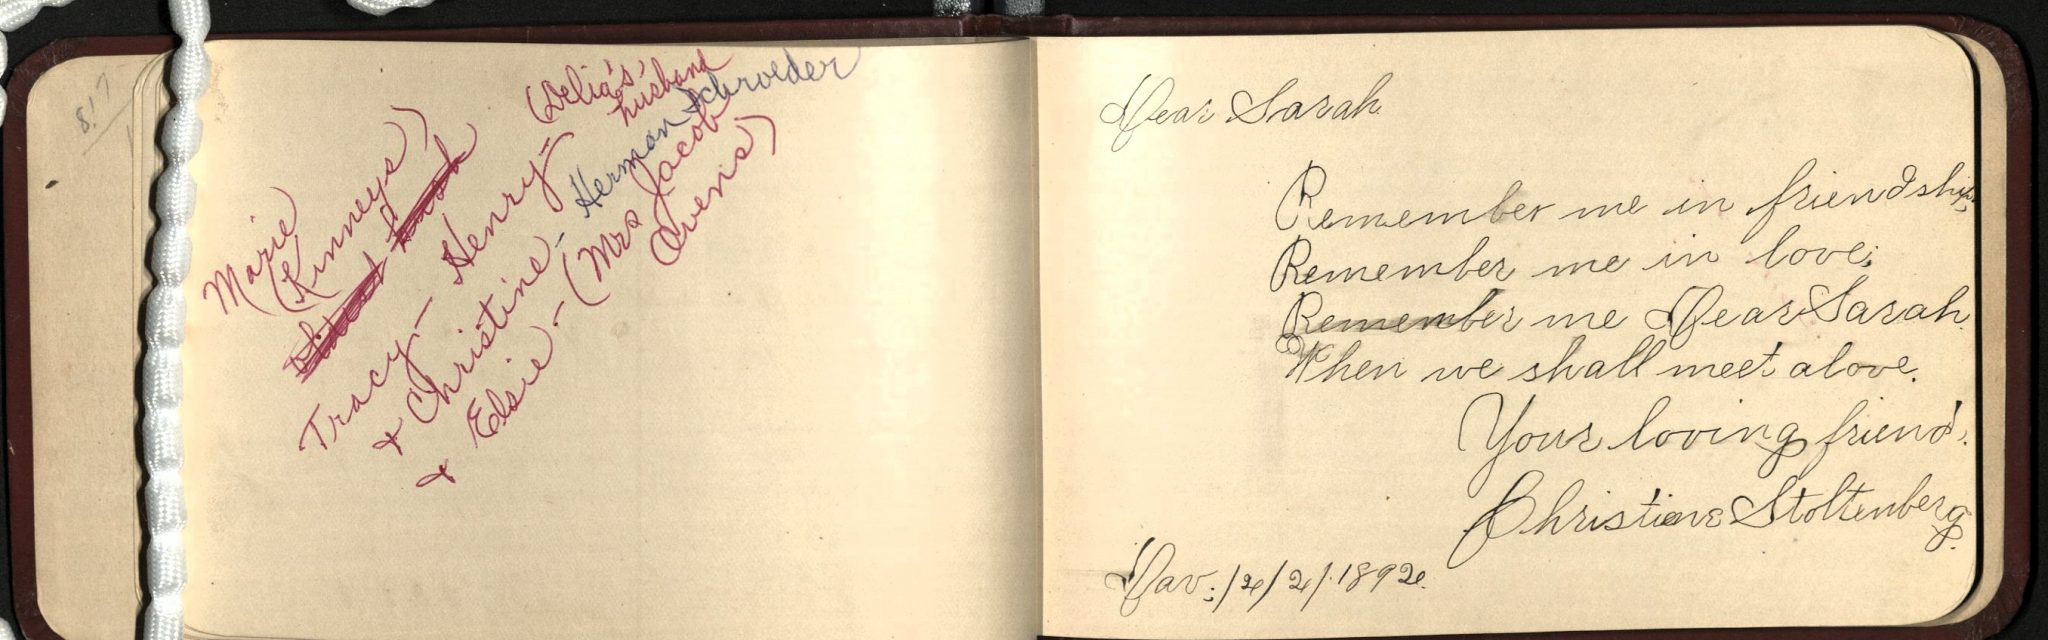 8!7
Marie
(Kinneys)
Tracy - Henry - (Delia's husband
& Christine - Herman Schroeder
& Elsie - (Mrs Jacob
Ovens)
Dear Sarah.
Remember me in friendship,
Remember me in love;
Remember me Dear Sarah
When we shall meet alove.
Your loving friend.
Christiene Stoltenberg.
Dav; /2/2/.1892.